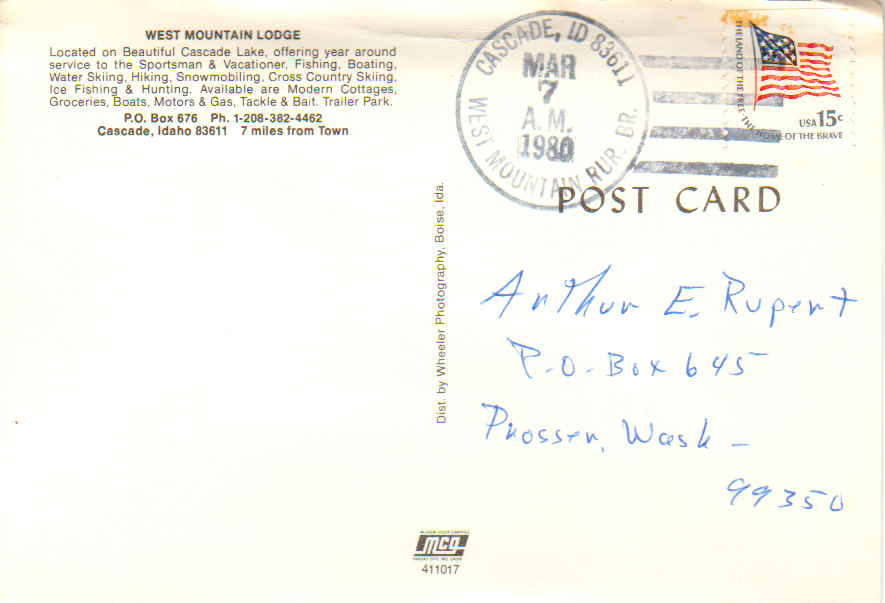 WEST MOUNTAIN LODGE
Located on Beautiful Cascade Lake, offering year around
service to the Sportsman & Vacationer, Fishing, Boating,
Water Skiing, Hiking, Snowmobiling, Cross Country Skiing,
Ice Fishing & Hunting. Available are Modern Cottages,
Groceries, Boats, Motors & Gas, Tackle & Bait. Trailer Park.
P.O. Box 676 Ph. 1-208-382-4462
Cascade, Idaho 83611 7 miles from Town
CASCADE, ID 83611
MAR
7
A.M.
1980
WEST MOUNTAIN RUR. BR.
THE LAND OF THE FREE THE HOME OF THE BRAVE
USA 15c
POST CARD
Dist. by Wheeler Photography, Boise, Ida.
Arthur E. Rupert
P.O. Box 645
Prosser, Wash -
99350
MCG
411017